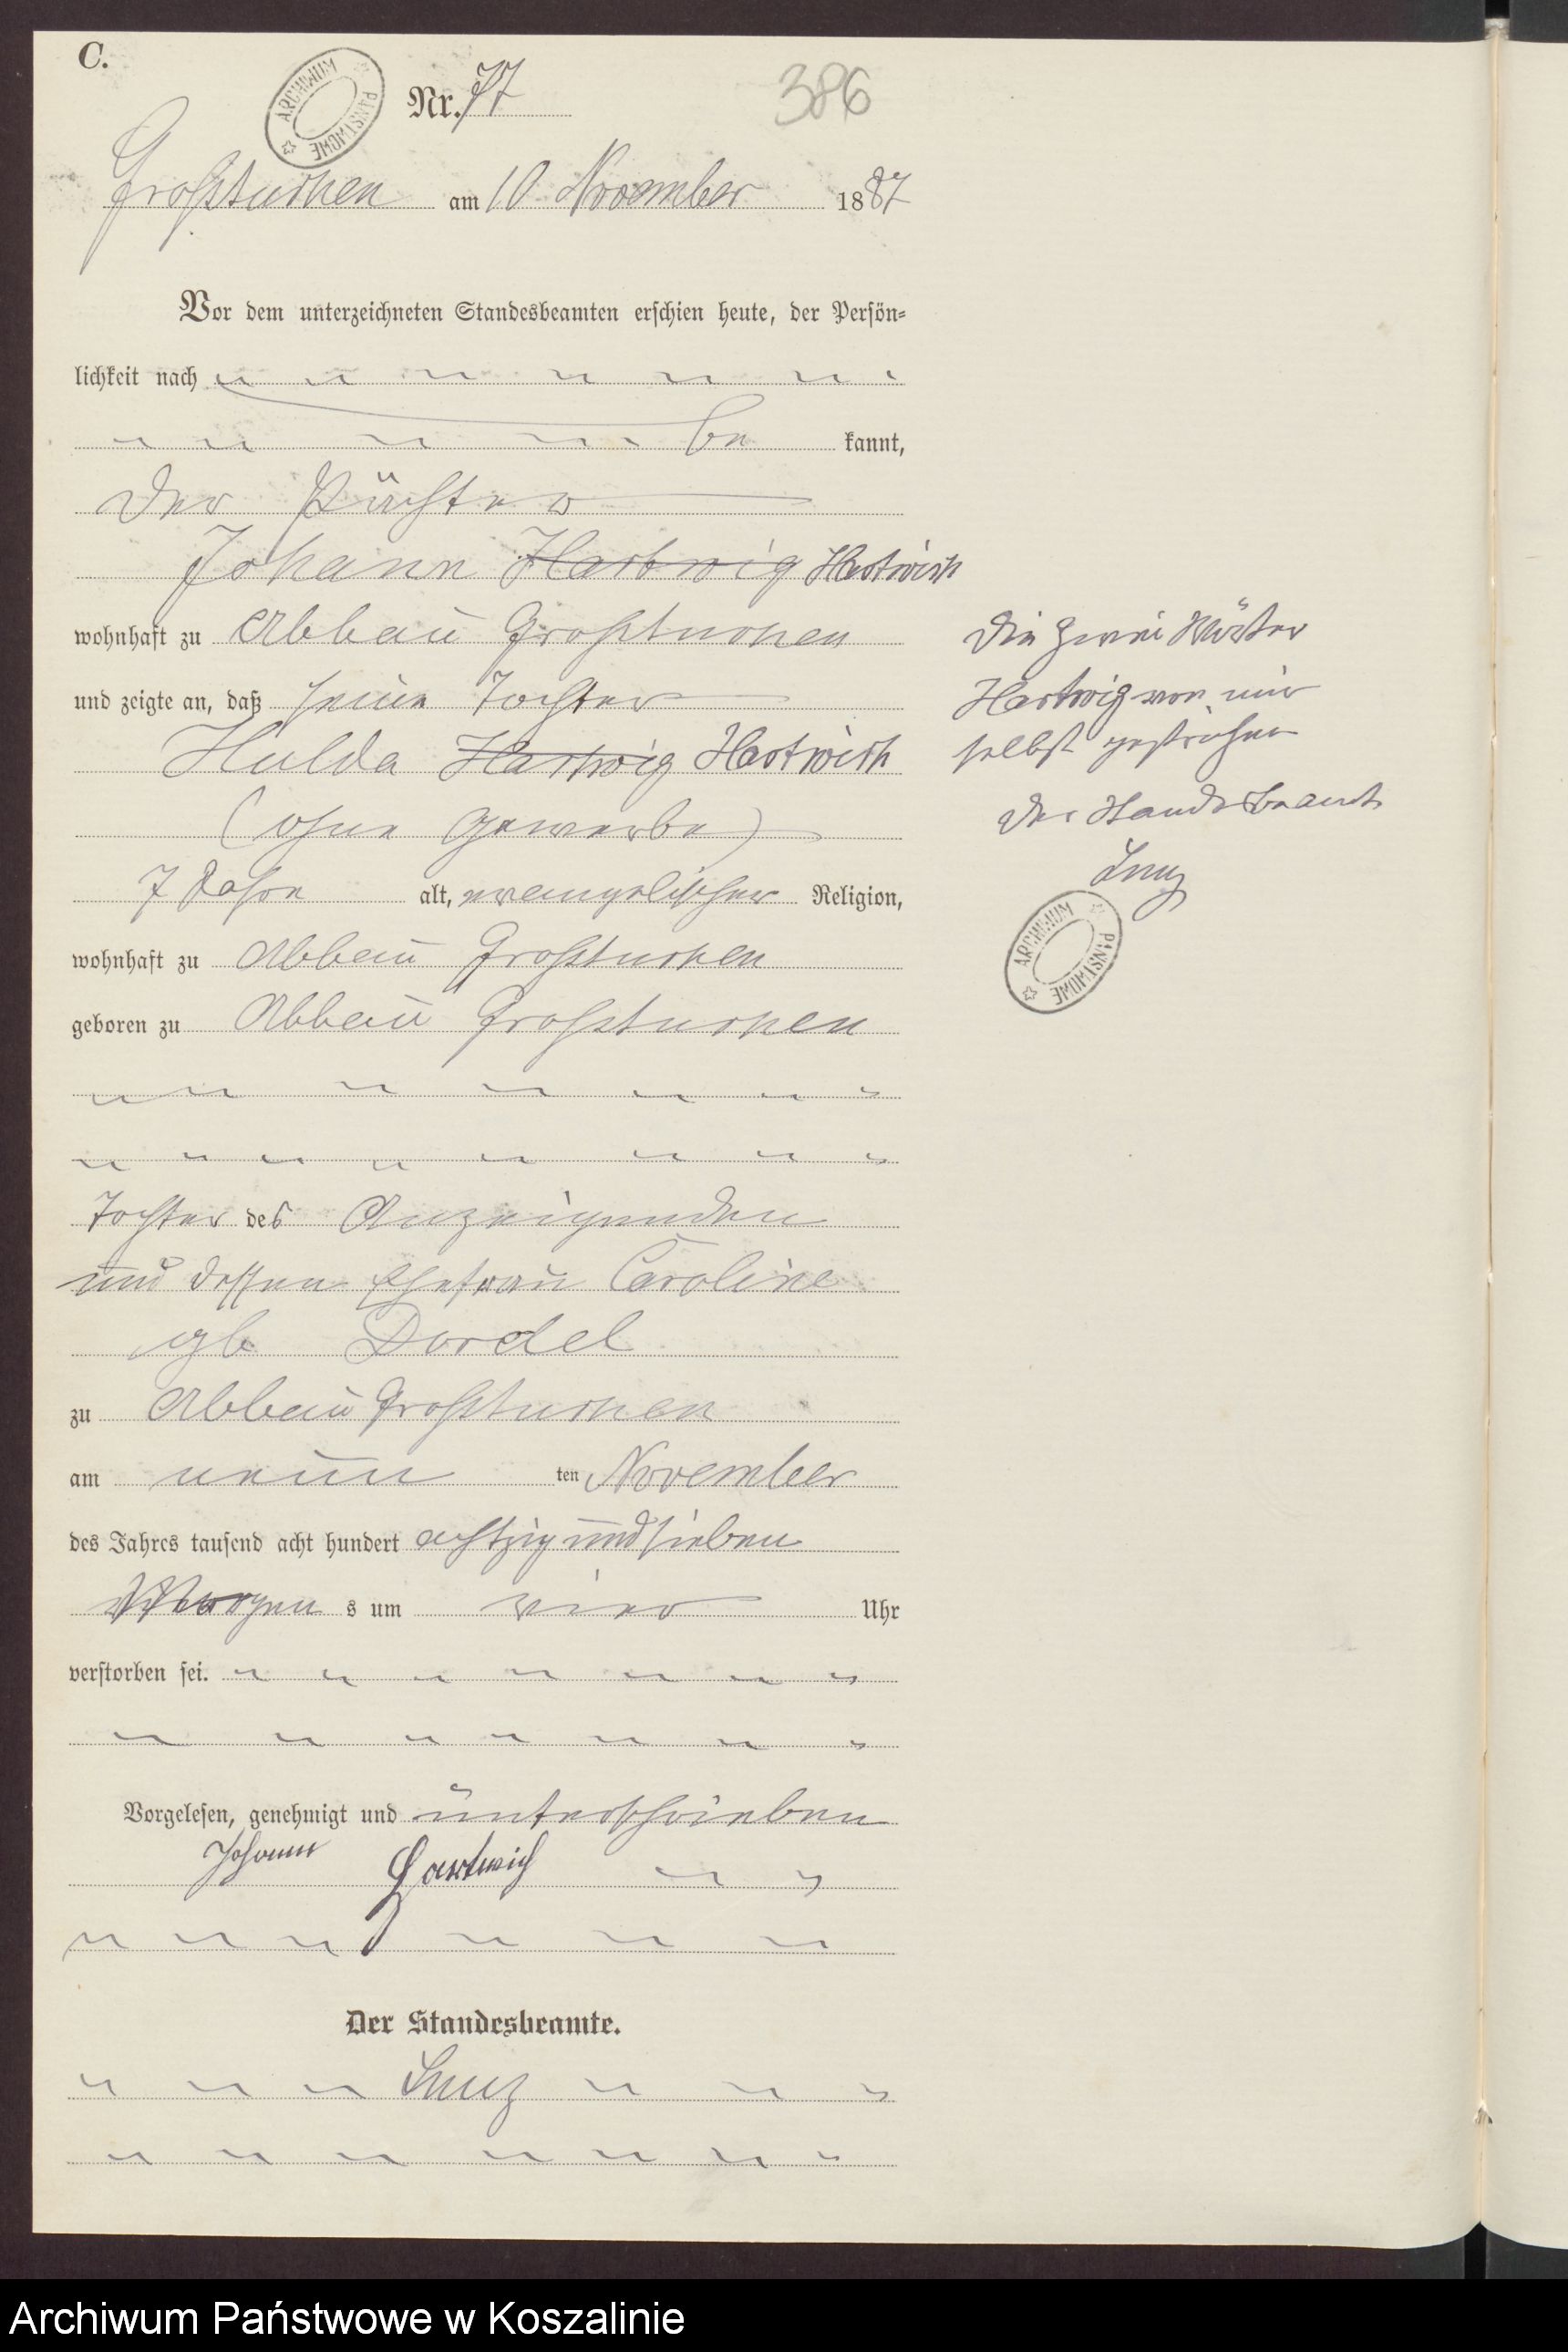 C.
ARCHIWUM PAŃSTWOWE
Nr. 77
386
Großtuchen am 10 November 1887
Vor dem unterzeichneten Standesbeamten erschien heute, der Persön-
lichkeit nach
be kannt,
der Pächter
Johann Hartwig Hartwich
wohnhaft zu Abbau Großtuchen
und zeigte an, daß seine Tochter
Hulda Hartwig Hartwich
(ohne Gewerbe)
7 Jahre alt, evangelischer Religion,
wohnhaft zu Abbau Großtuchen
geboren zu Abbau Großtuchen
Tochter des Anzeigenden
und dessen Ehefrau Caroline
gb Dordel
zu Abbau Großtuchen
am neun ten November
des Jahres tausend acht hundert achtzig und sieben
Morgen s um vier Uhr
verstorben sei.
Vorgelesen, genehmigt und unterschrieben
Johann Hartwich
Der Standesbeamte.
Lenz
Die zwei Wörter
Hartwig von mir
selbst gestrichen
Der Standesbeamte
Lenz
ARCHIWUM PAŃSTWOWE
Archiwum Państwowe w Koszalinie